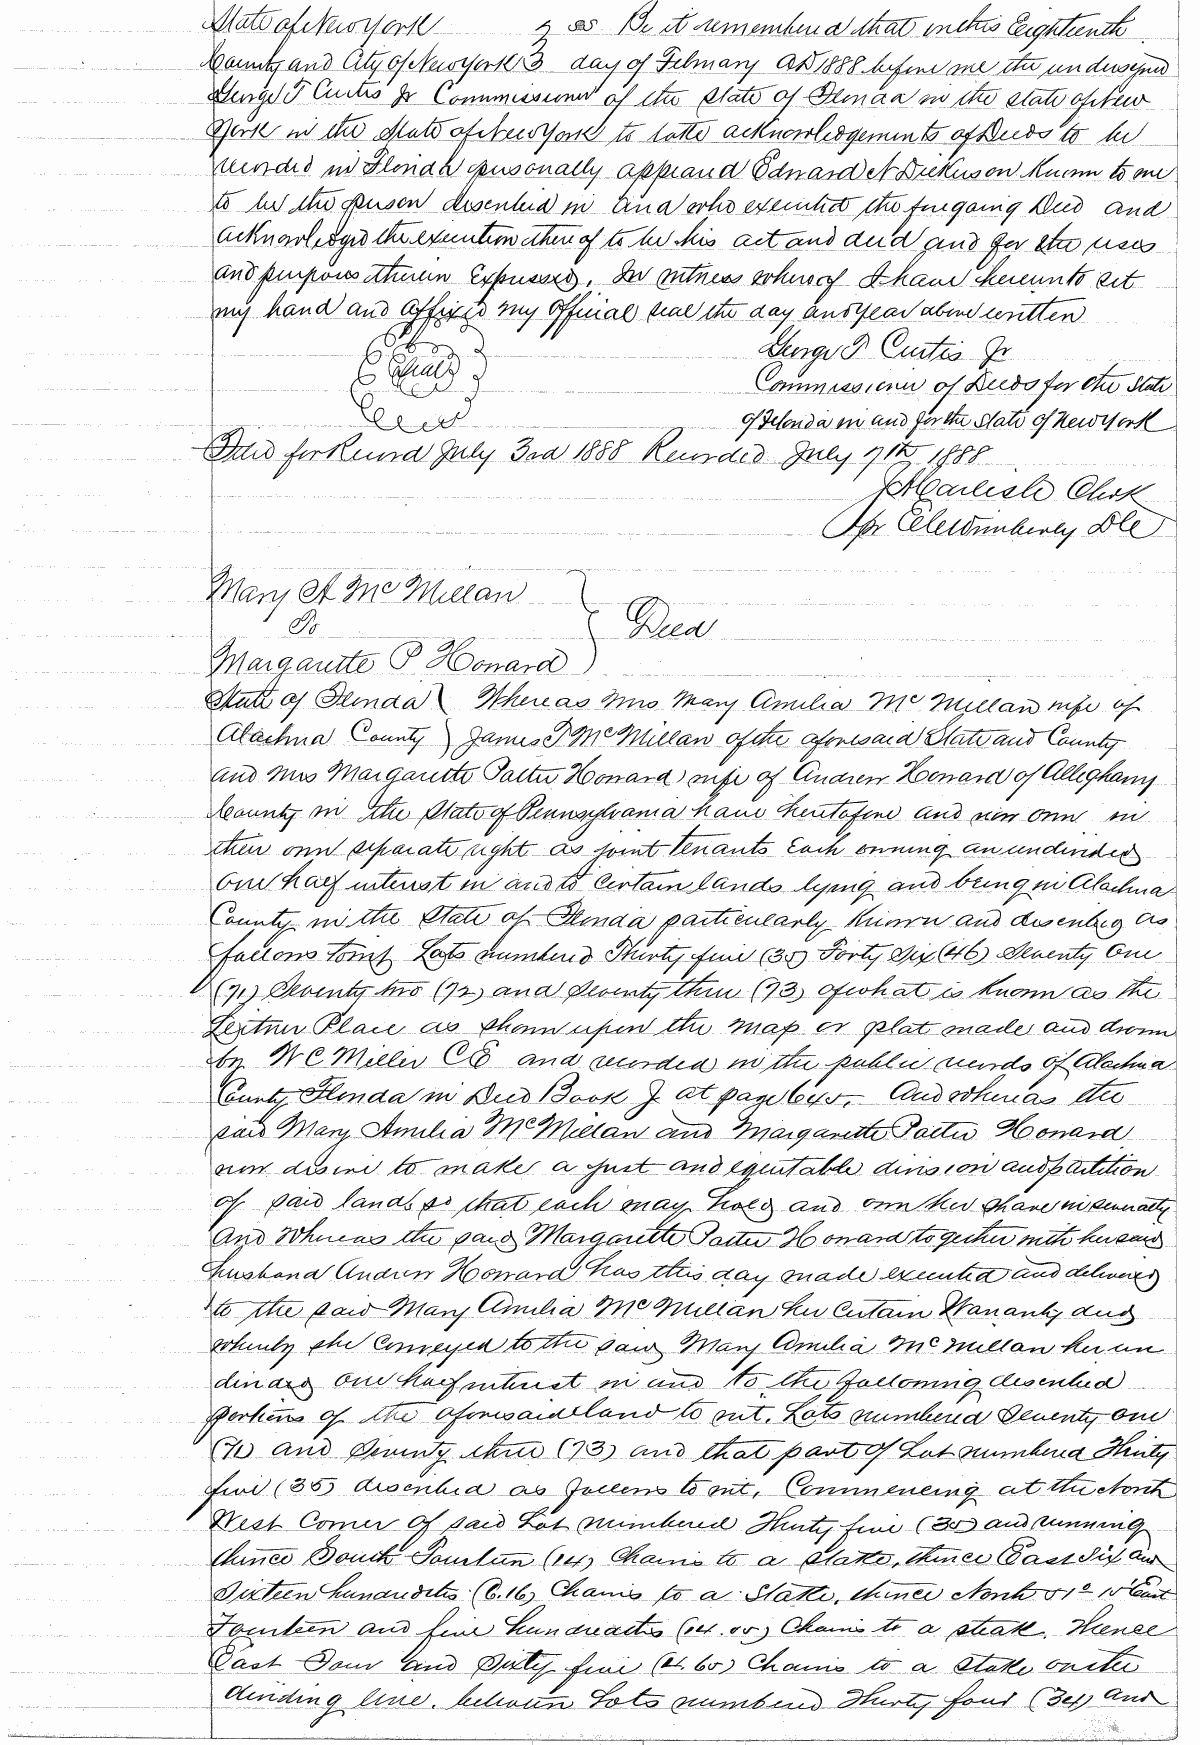 State of New York } ss Be it remembered that on this Eighteenth
County and City of New York } day of February AD 1888 before me the undersigned
George T Curtis Jr Commissioner of the State of Florida in the state of New
York in the State of New York to take acknowledgements of Deeds to be
recorded in Florida personally appeared Edward N Dickerson known to me
to be the person described in and who executed the foregoing Deed and
acknowledged the execution thereof to be his act and deed and for the uses
and purposes therein Expressed. In witness whereof I have hereunto set
my hand and affixed my official seal the day and year above written
George T Curtis Jr
Seal
Commissioner of Deeds for the State
of Florida in and for the State of New York
Filed for Record July 3rd 1888 Recorded July 7th 1888
J A Carlisle Clerk
pr Wimberly DC
Mary A McMillan
To } Deed
Margarette P Howard
State of Florida } Whereas Mrs Mary Amelia McMillan wife of
Alachua County } James T McMillan of the aforesaid State and County
and Mrs Margarette Porter Howard wife of Andrew Howard of Alleghany
County in the State of Pennsylvania have heretofore and now own in
their own separate right as joint tenants Each owning an undivided
one half interest in and to certain lands lying and being in Alachua
County in the State of Florida particularly known and described as
follows towit Lots numbered Thirty five (35) Forty Six (46) Seventy One
(71) Seventy two (72) and Seventy three (73) of what is known as the
Leitner Place as shown upon the map or plat made and drawn
by W C Miller CE and recorded in the public records of Alachua
County Florida in Deed Book J at page 645. And whereas the
said Mary Amelia McMillan and Margarette Porter Howard
now desire to make a just and equitable division and partition
of said lands so that each may hold and own her share in severalty
And Whereas the said Margarette Porter Howard together with her said
husband Andrew Howard has this day made executed and delivered
to the said Mary Amelia McMillan her certain Warranty deed
whereby she conveyed to the said Mary Amelia McMillan her un
divided one half interest in and to the following described
portions of the aforesaid land to wit. Lots numbered Seventy one
(71) and Seventy three (73) and that part of Lot numbered Thirty
five (35) described as follows to wit. Commencing at the North
West Corner of said Lot numbered Thirty five (35) and running
thence South Fourteen (14) Chains to a stake, thence East Six and
Sixteen hundredths (6.16) Chains to a Stake, thence North 51° 15' East
Fourteen and five hundredths (14.05) Chains to a steak. Thence
East Four and Sixty five (4.65) Chains to a stake on the
dividing line between Lots numbered Thirty four (34) and